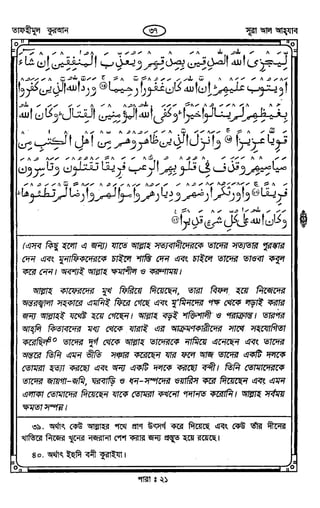 তাফহীমুল কুরআন
৩৭
সূরা আল আহযাব
لِّيَجْزِيَ اللّٰهُ الصّٰدِقِيْنَ بِصِدْقِهِمْ وَيُعَذِّبَ الْمُنٰفِقِيْنَ اِنْ شَآءَ
اَوْ يَتُوْبَ عَلَيْهِمْ اِنَّ اللّٰهَ كَانَ غَفُوْرًا رَّحِيْمًا ۝ وَرَدَّ اللّٰهُ الَّذِيْنَ كَفَرُوْا
بِغَيْظِهِمْ لَمْ يَنَالُوْا خَيْرًا وَكَفَى اللّٰهُ الْمُؤْمِنِيْنَ الْقِتَالَ وَكَانَ اللّٰهُ
قَوِيًّا عَزِيْزًا ۝ وَاَنْزَلَ الَّذِيْنَ ظَاهَرُوْهُمْ مِّنْ اَهْلِ الْكِتٰبِ مِنْ
صَيَاصِيْهِمْ وَقَذَفَ فِيْ قُلُوْبِهِمُ الرُّعْبَ فَرِيْقًا تَقْتُلُوْنَ وَتَاْسِرُوْنَ
فَرِيْقًا ۝ وَاَوْرَثَكُمْ اَرْضَهُمْ وَدِيَارَهُمْ وَاَمْوَالَهُمْ وَاَرْضًا لَّمْ تَطَئُوْهَا
وَكَانَ اللّٰهُ عَلٰى كُلِّ شَيْءٍ قَدِيْرًا ۝
(এসব কিছু হলো এ জন্য) যাতে আল্লাহ সত্যবাদীদেরকে তাদের সত্যতার পুরস্কার
দেন এবং মুনাফিকদেরকে চাইলে শাস্তি দেন এবং চাইলে তাদের তাওবা কবুল
করে নেন। অবশ্যই আল্লাহ ক্ষমাশীল ও করুণাময়।
আল্লাহ কাফেরদের মুখ ফিরিয়ে দিয়েছেন, তারা বিফল হয়ে নিজেদের
অন্তরজ্বালা সহকারে এমনিই ফিরে গেছে এবং মু'মিনদের পক্ষ থেকে লড়াই করার
জন্য আল্লাহই যথেষ্ট হয়ে গেছেন। আল্লাহ বড়ই শক্তিশালী ও পরাক্রান্ত। তারপর
আহলি কিতাবদের মধ্য থেকে যারাই এর আক্রমণকারীদের সাথে সহযোগিতা
করেছিল৪০ তাদের দুর্গ থেকে আল্লাহ তাদেরকে নামিয়ে এনেছেন এবং তাদের
অন্তরে তিনি এমন ভীতি সঞ্চার করেছেন যার ফলে আজ তাদের একটি দলকে
তোমরা হত্যা করছো এবং অন্য একটি দলকে করছো বন্দী। তিনি তোমাদেরকে
তাদের জায়গা-জমি, ঘরবাড়ি ও ধন-সম্পদের ওয়ারিস করে দিয়েছেন এবং এমন
এলাকা তোমাদের দিয়েছেন যাকে তোমরা কখনো পদানত করোনি। আল্লাহ সর্বময়
ক্ষমতা সম্পন্ন।
৩৯. অর্থাৎ কেউ আল্লাহর পথে প্রাণ উৎসর্গ করে দিয়েছে এবং কেউ তাঁর দীনের
খাতিরে নিজের খুনের নজরানা পেশ করার জন্য প্রস্তুত হয়ে রয়েছে।
৪০. অর্থাৎ ইহুদি বনী কুরাইযা।
পারা : ২১